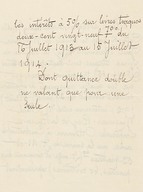 les intérêts à 5% sur livres turques
deux-cent vingt-neuf 70% du
15 Juillet 1913 au 15 Juillet
1914.-
Dont quittance double
ne valant que pour une
seule